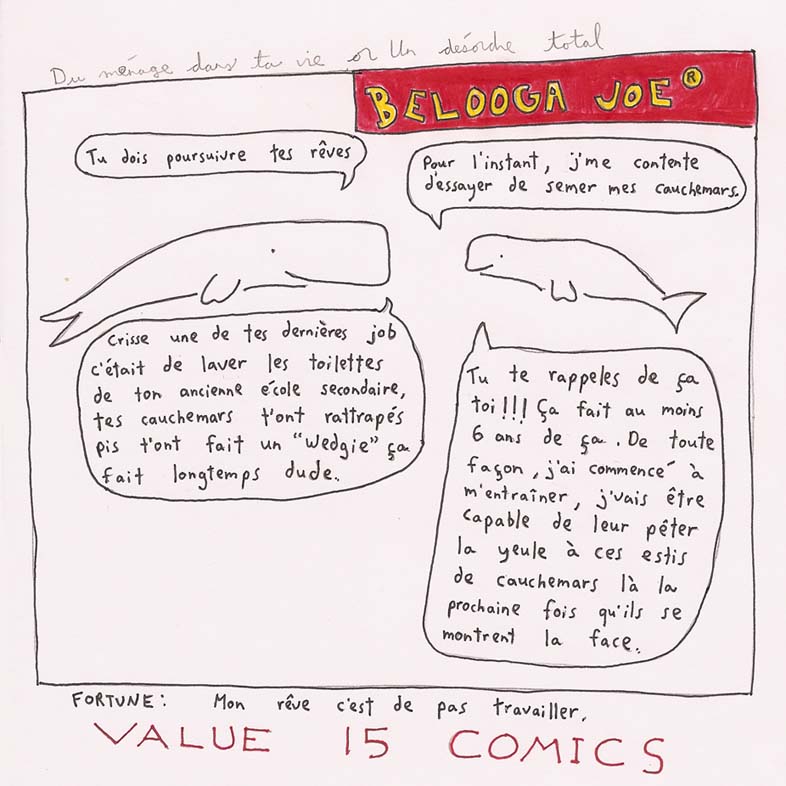 Du ménage dans ta vie or Un désordre total
BELOOGA JOE®
Tu dois poursuivre tes rêves
Pour l'instant, j'me contente
d'essayer de semer mes cauchemars.
Crisse une de tes dernières job
c'était de laver les toilettes
de ton ancienne école secondaire,
tes cauchemars t'ont rattrapés
pis t'ont fait un "wedgie" ça
fait longtemps dude.
Tu te rappeles de ça
toi!!! Ça fait au moins
6 ans de ça. De toute
façon, j'ai commencé à
m'entraîner, j'vais être
capable de leur péter
la yeule à ces estis
de cauchemars là la
prochaine fois qu'ils se
montrent la face.
FORTUNE: Mon rêve c'est de pas travailler.
VALUE 15 COMICS